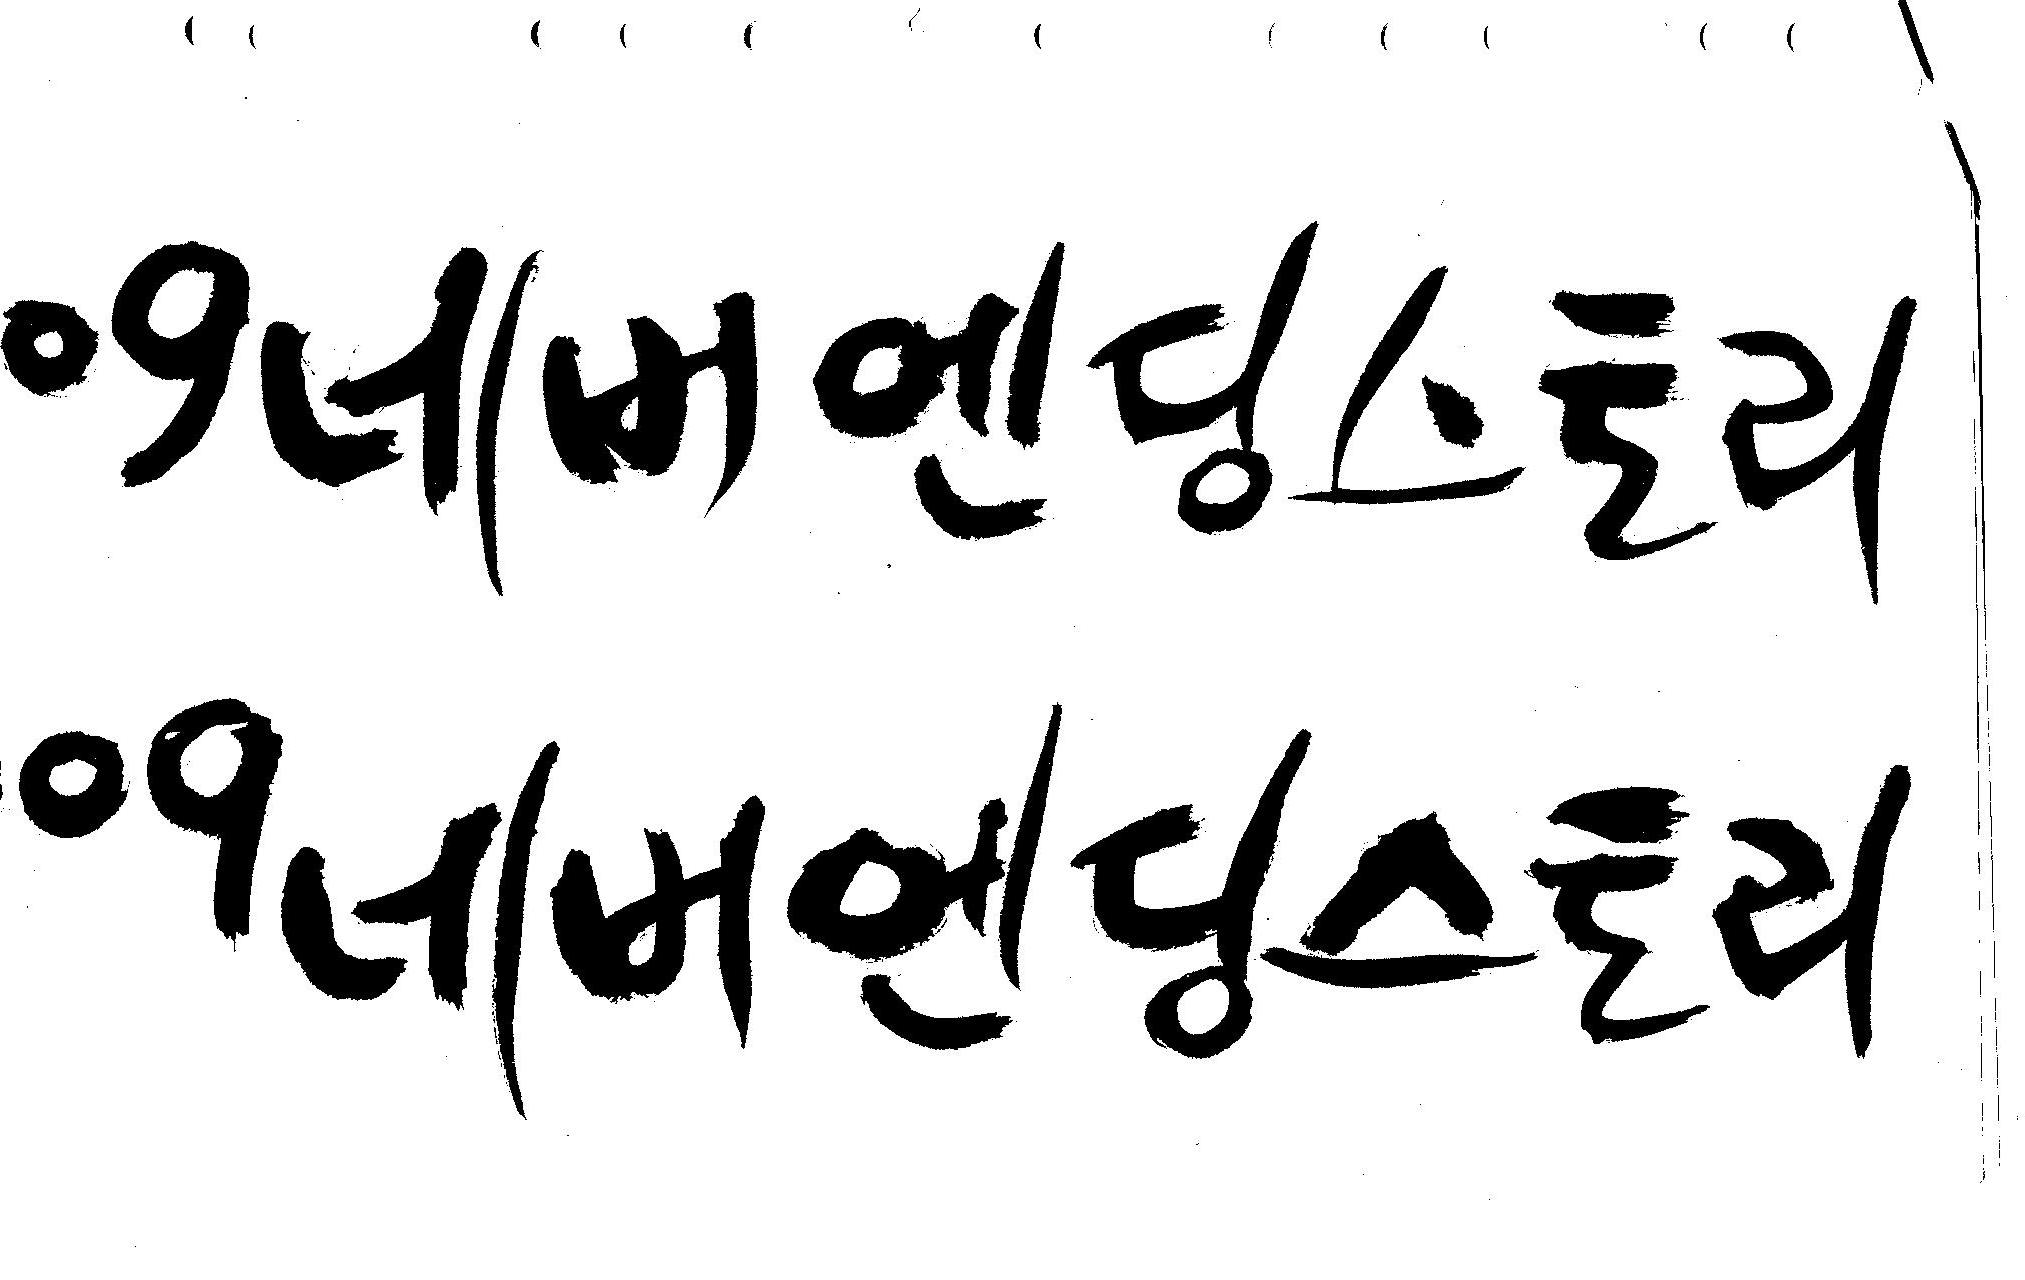 09네버엔딩스토리
09네버엔딩스토리